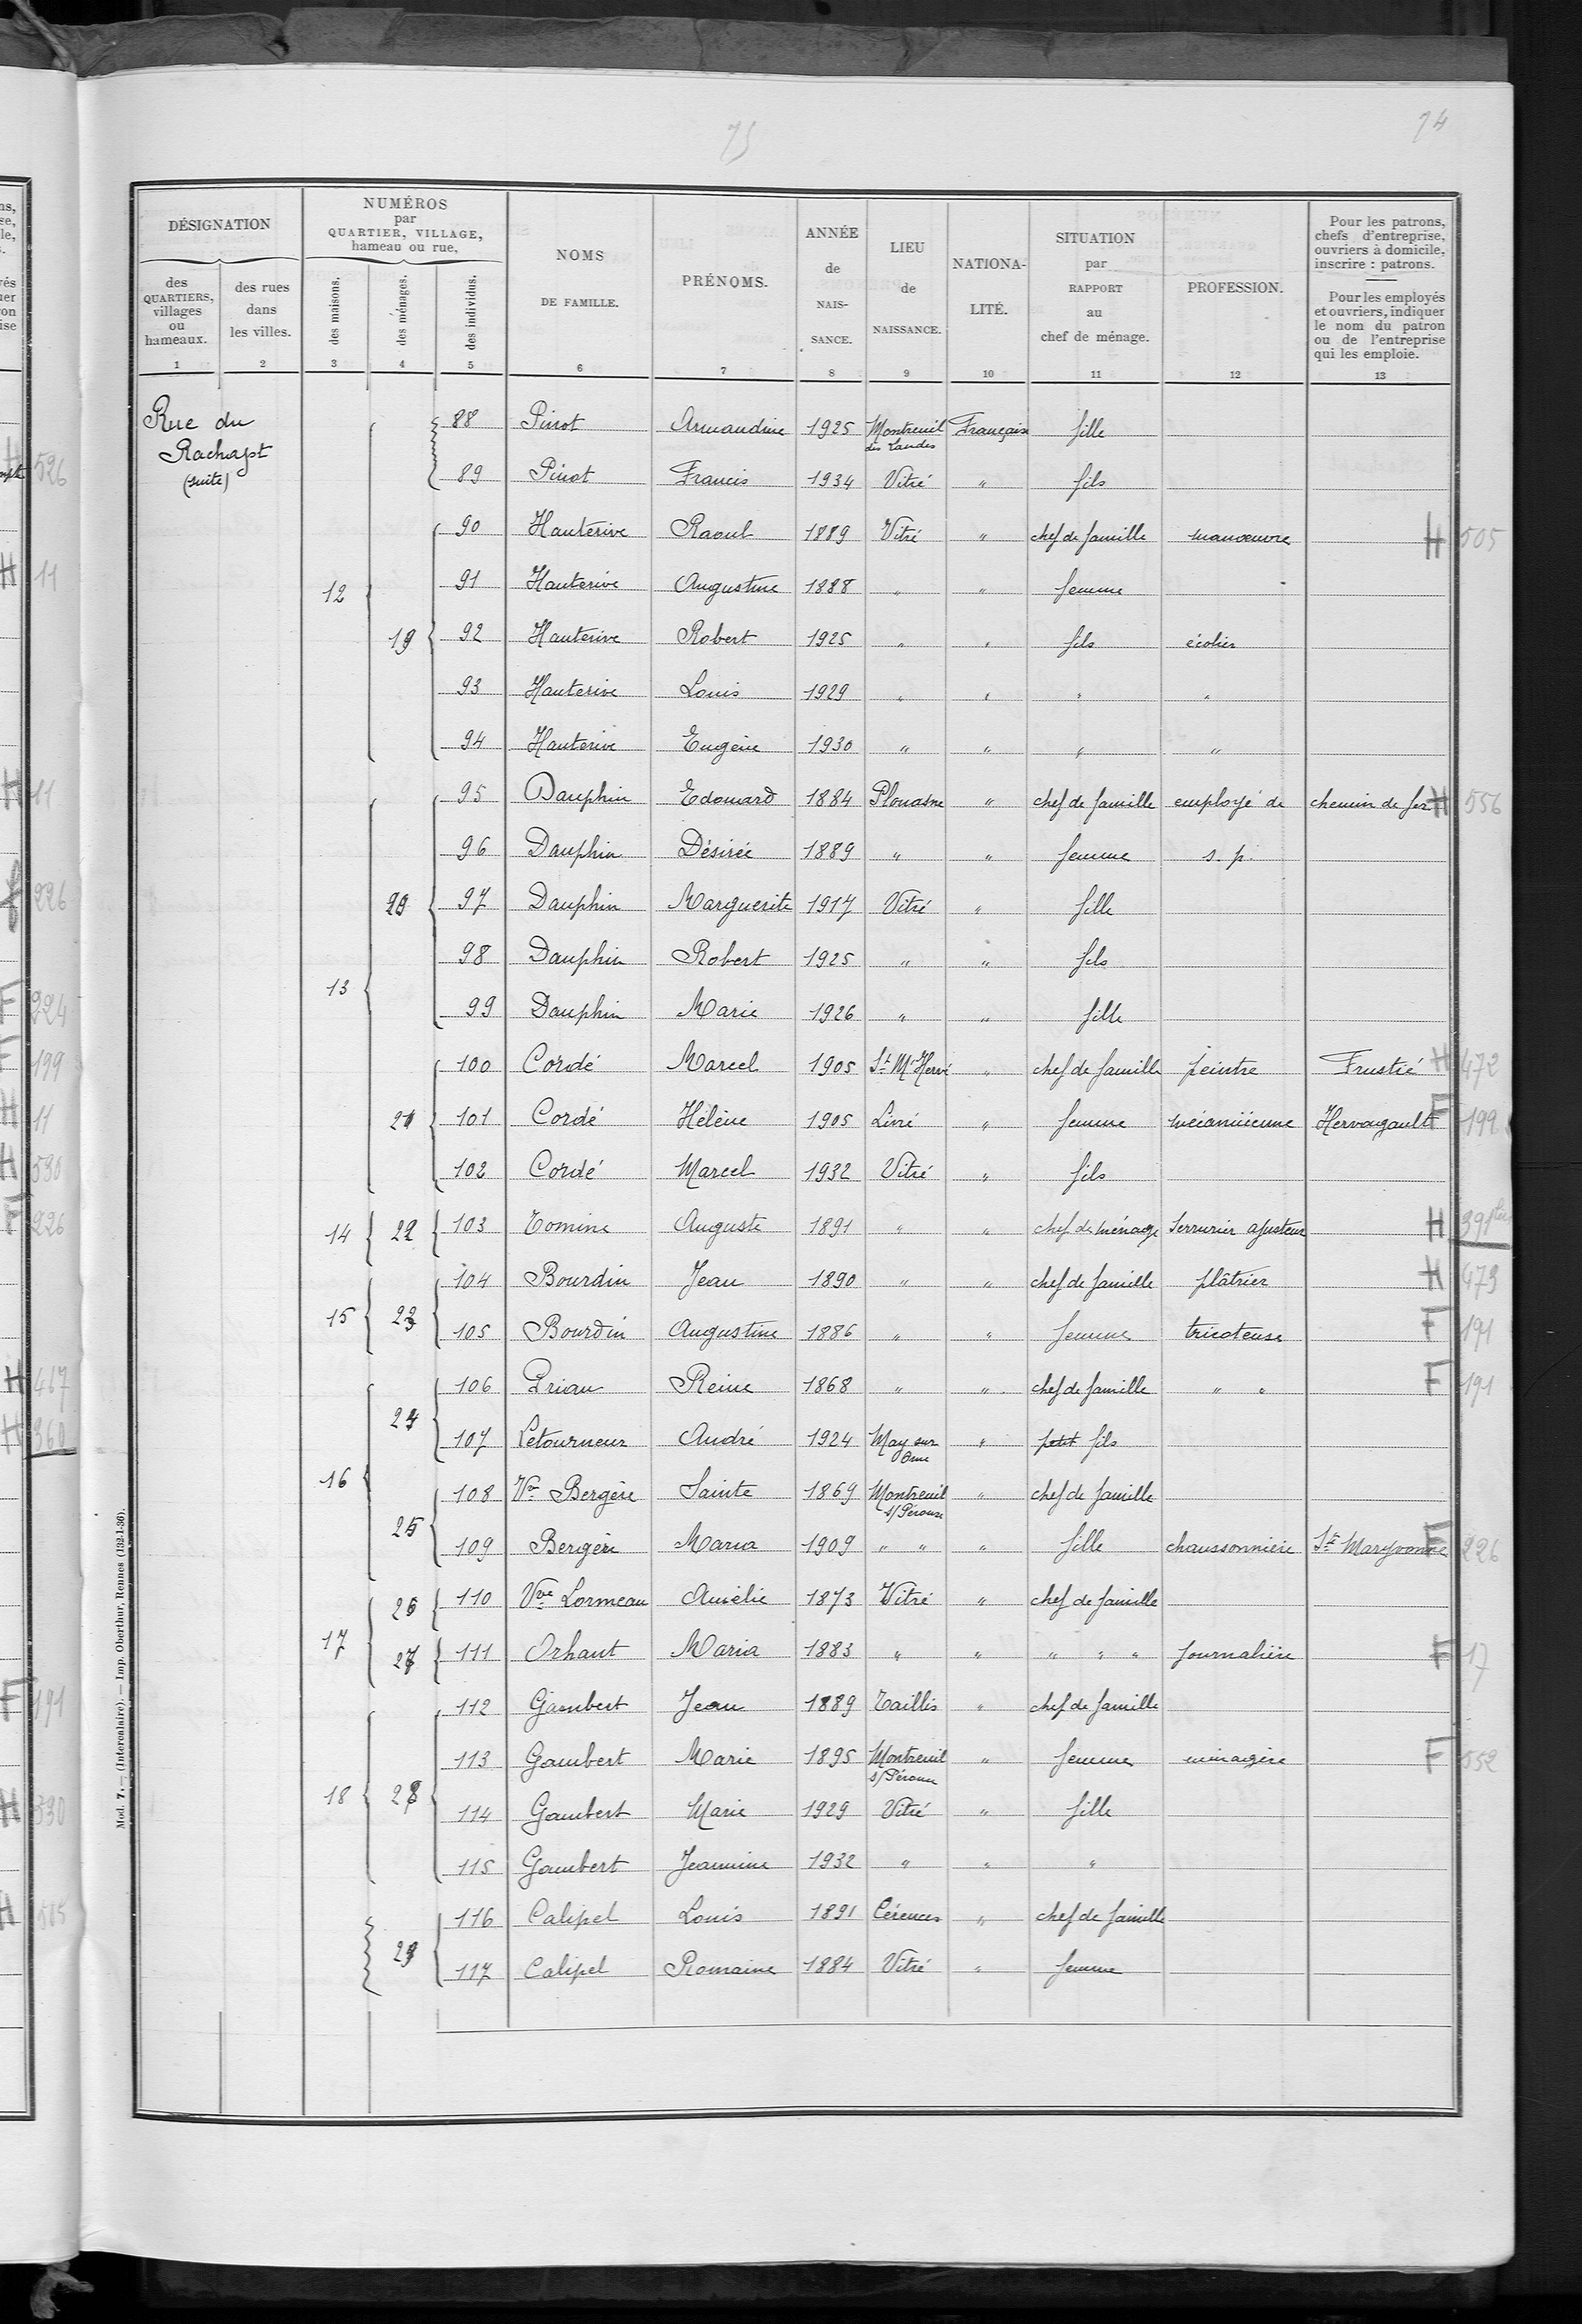 74
75
DÉSIGNATION
NUMÉROS
par
QUARTIER, VILLAGE,
hameau ou rue,
des
QUARTIERS,
villages
ou
hameaux.
des rues
dans
les villes.
des maisons.
des ménages.
des individus.
NOMS
DE FAMILLE.
PRÉNOMS.
ANNÉE
de
NAIS-
SANCE.
LIEU
de
NAISSANCE.
NATIONA-
LITÉ.
SITUATION
par
RAPPORT
au
chef de ménage.
PROFESSION.
Pour les patrons,
chefs d'entreprise,
ouvriers à domicile,
inscrire : patrons.
Pour les employés
et ouvriers, indiquer
le nom du patron
ou de l'entreprise
qui les emploie.
1 2 3 4 5 6 7 8 9 10 11 12 13
Rue du
Rachapt
(suite)
88 Pinot Armandine 1925 Montreuil des Landes Française fille
89 Pinot Francis 1934 Vitré " fils
90 Hauterive Raoul 1889 Vitré " chef de famille manoeuvre H 505
12
91 Hauterive Augustine 1888 " " femme
19 92 Hauterive Robert 1925 " " fils écolier
93 Hauterive Louis 1929 " " " "
94 Hauterive Eugène 1930 " " " "
95 Dauphin Edouard 1884 Plouasne " chef de famille employé de chemin de fer H 556
96 Dauphin Désirée 1889 " " femme s. p.
20 97 Dauphin Marguerite 1917 Vitré " fille
98 Dauphin Robert 1925 " " fils
13
99 Dauphin Marie 1926 " " fille
100 Cordé Marcel 1905 St M'Hervé " chef de famille peintre Frustié H 472
21 101 Cordé Hélène 1905 Livré " femme mécanicienne Hervagault F 199
102 Cordé Marcel 1932 Vitré " fils
14 22 103 Tomine Auguste 1891 " " chef de ménage Serrurier ajusteur H 391
104 Bourdin Jean 1890 " " chef de famille plâtrier H 473
15 23
105 Bourdin Augustine 1886 " " femme tricoteuse F 191
106 Priau Reine 1868 " " chef de famille " " F 191
24
107 Letourneur André 1924 May sur Orne " petit fils
16
108 Vve Bergère Sainte 1869 Montreuil s/Pérouse " chef de famille
25
109 Bergère Maria 1909 " " " fille chaussonnière Ste Maryvonne F 226
26 110 Vve Lormeau Amélie 1873 Vitré " chef de famille
17
27 111 Orhant Maria 1883 " " " " " Journalière F 17
112 Gambert Jean 1889 Taillis " chef de famille
113 Gambert Marie 1895 Montreuil s/Pérouse " femme ménagère F 552
18 28
114 Gambert Marie 1929 Vitré " fille
115 Gambert Jeannine 1932 " " "
116 Calipel Louis 1891 Cérences " chef de famille
29
117 Calipel Romaine 1884 Vitré " femme
Mod. 7. — (Intercalaire). — Imp. Oberthur, Rennes (132-1-36).